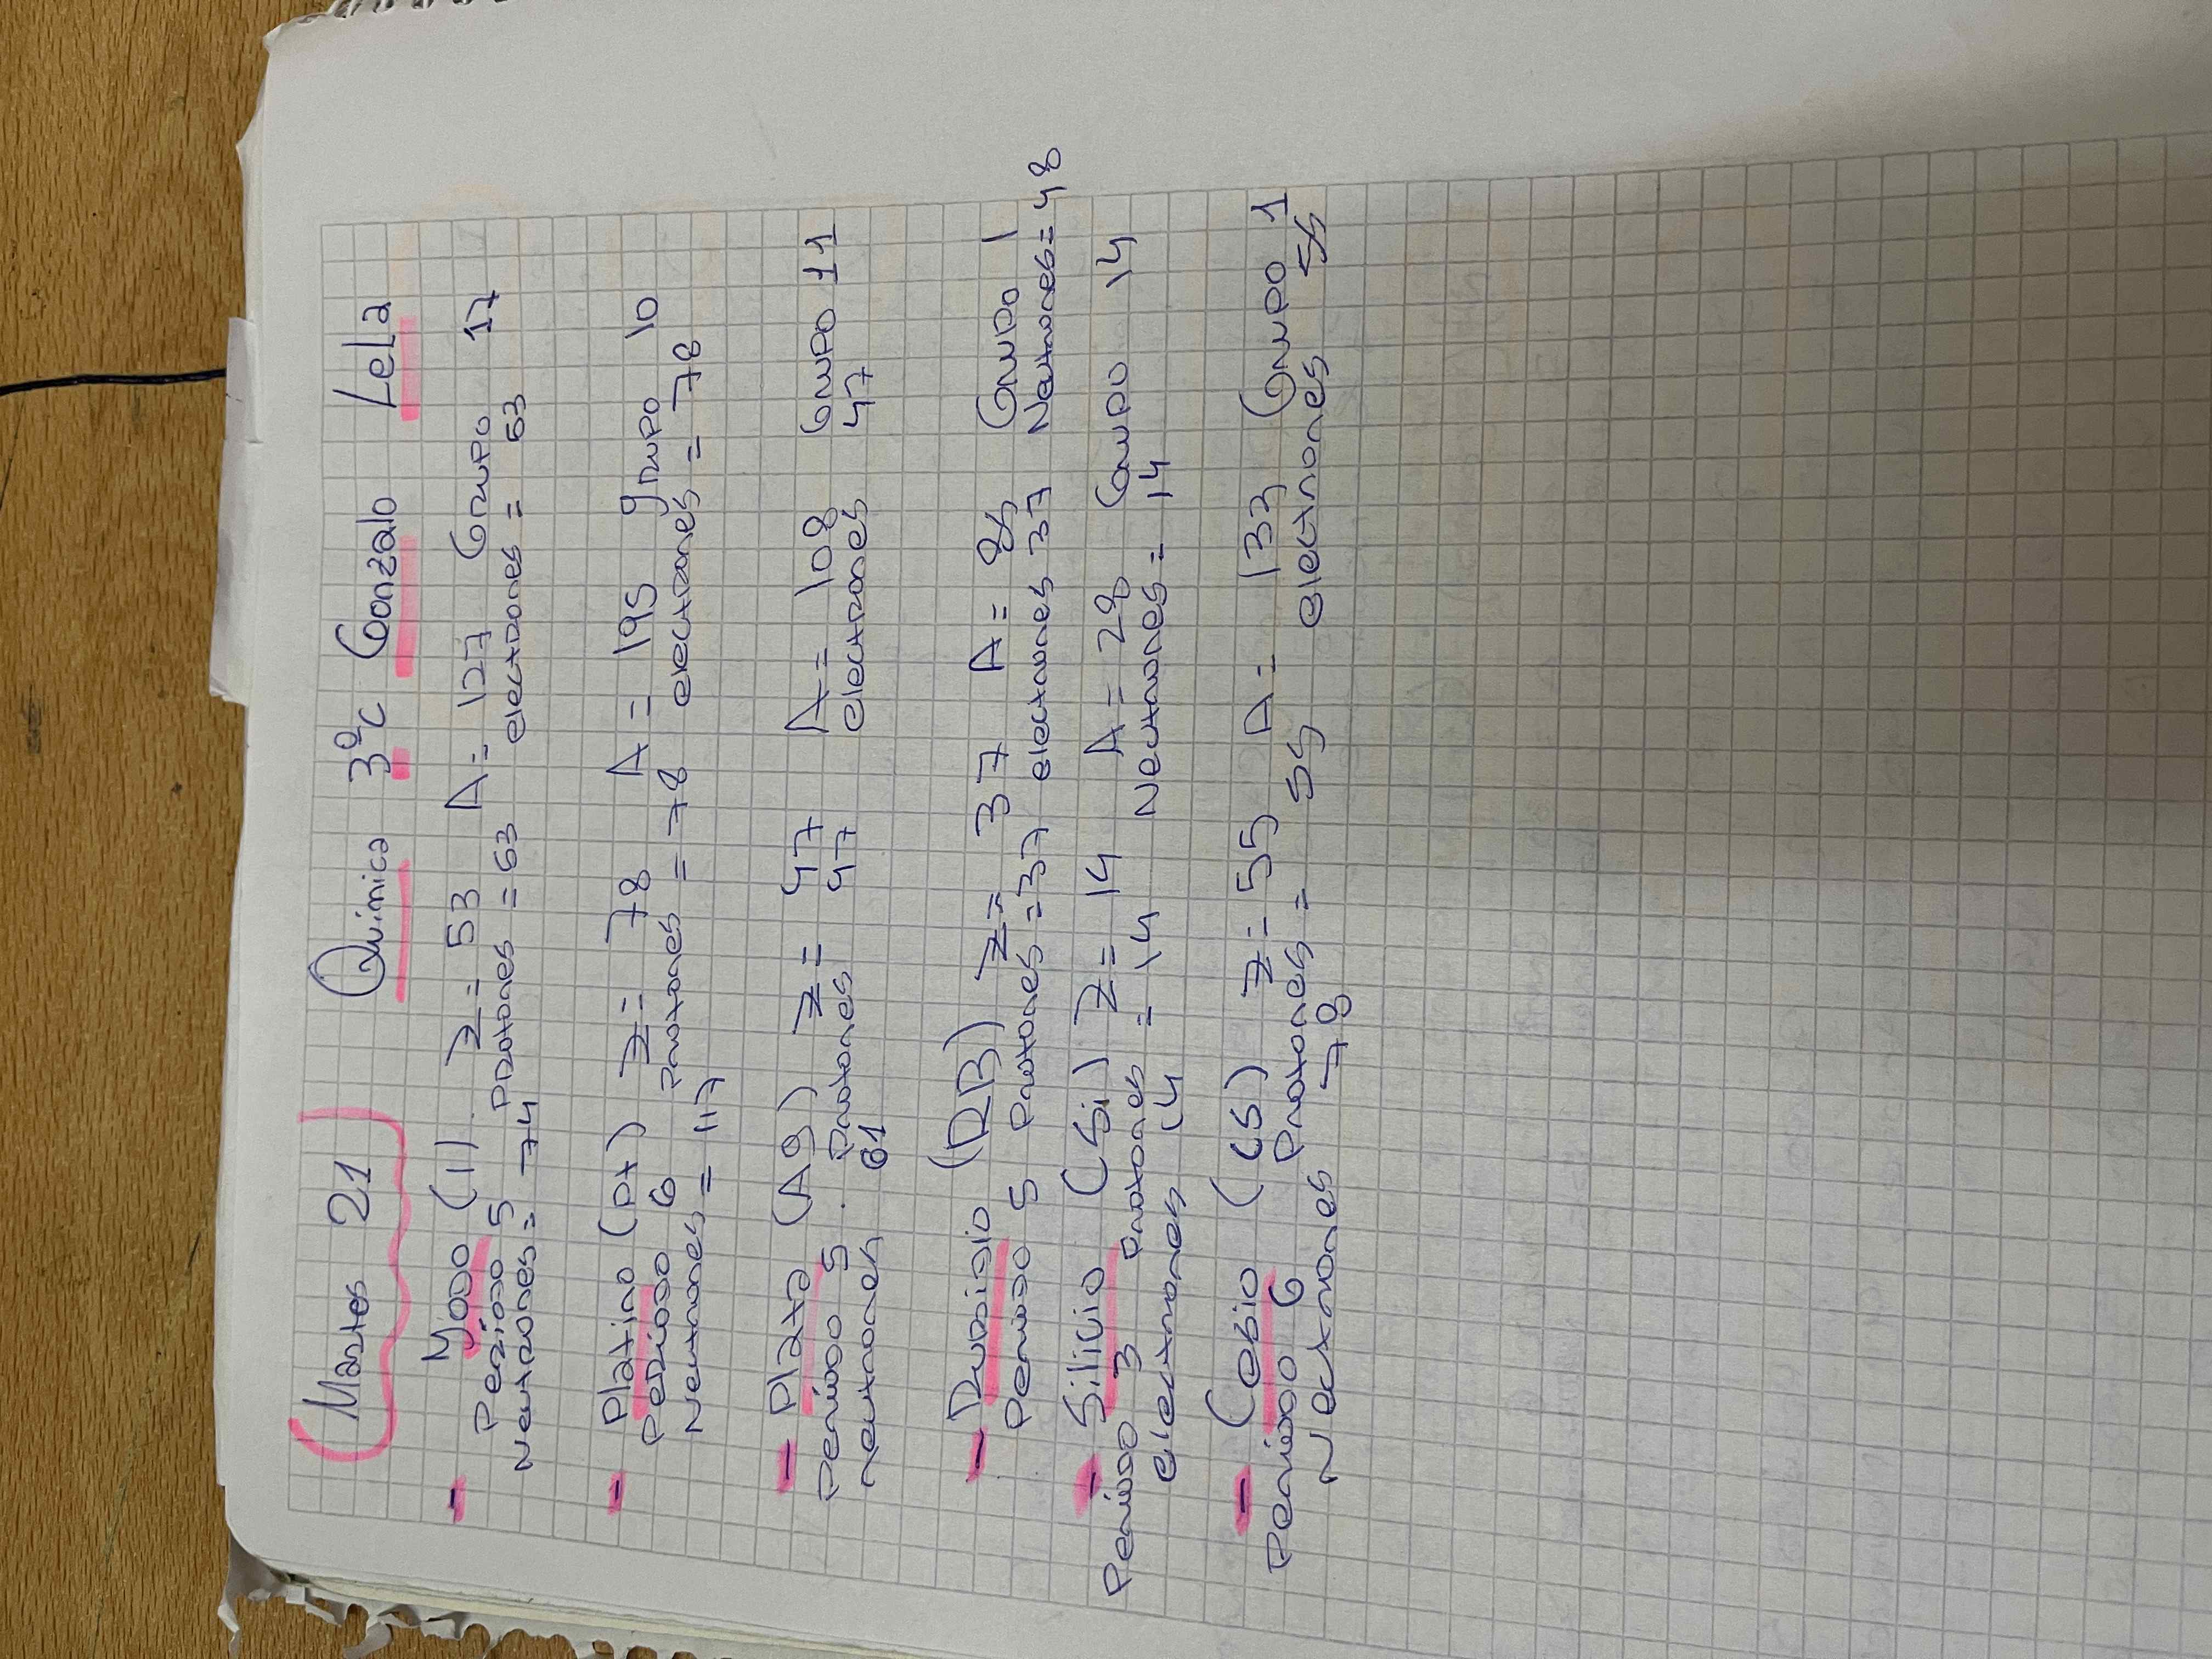 Martes 21 Química 3ºC Gonzalo Lela
- Yodo (I) Z= 53 A= 127 Grupo 17
Periodo 5 Protones = 53 electrones = 53
Neutrones= 74
- Platino (Pt) Z= 78 A= 195 grupo 10
Periodo 6 Protones = 78 electrones = 78
Neutrones= 117
- Plata (Ag) Z= 47 A= 108 Grupo 11
Periodo 5. Protones 47 electrones 47
neutrones 61
- Rubidio (RB) Z= 37 A= 85 Grupo 1
Periodo 5 Protones =37 electrones 37 Neutrones= 48
- Silicio (Si) Z= 14 A= 28 Grupo 14
Periodo 3 Protones = 14 Neutrones= 14
electrones 14
- Cesio (CS) Z= 55 A= 133 Grupo 1
Periodo 6 Protones = 55 electrones 55
Neutrones 78